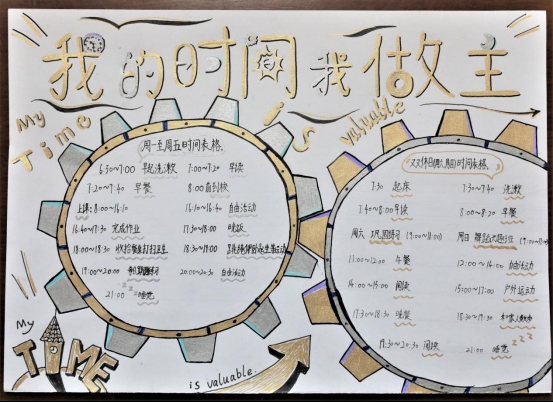 我的时间我做主
My Time is valuable
周一至周五时间表格
6:30~7:00 早起洗漱 7:00~7:20 早读
7:20~7:40 早餐 8:00 前到校
上课:8:00~16:10 16:10~16:40 自由活动
16:40~17:30 完成作业 17:30~18:00 晚饭
18:00~18:30 18:30~19:00
19:00~20:00 20:00~20:30 自由活动
21:00 睡觉
双休日(周六、周日)时间表格
7:30 起床 7:30~7:40 洗漱
7:40~8:00 早读 8:00~8:20 早餐
周六 (19:00~21:00) 周日
11:00~12:00 午餐 12:00~14:00 自由活动
14:00~15:00 阅读 15:00~17:00 户外运动
17:30~18:30 晚餐 18:30~19:30
19:30~20:30 阅读 21:00 睡觉
zzz
My
TIME
is valuable.